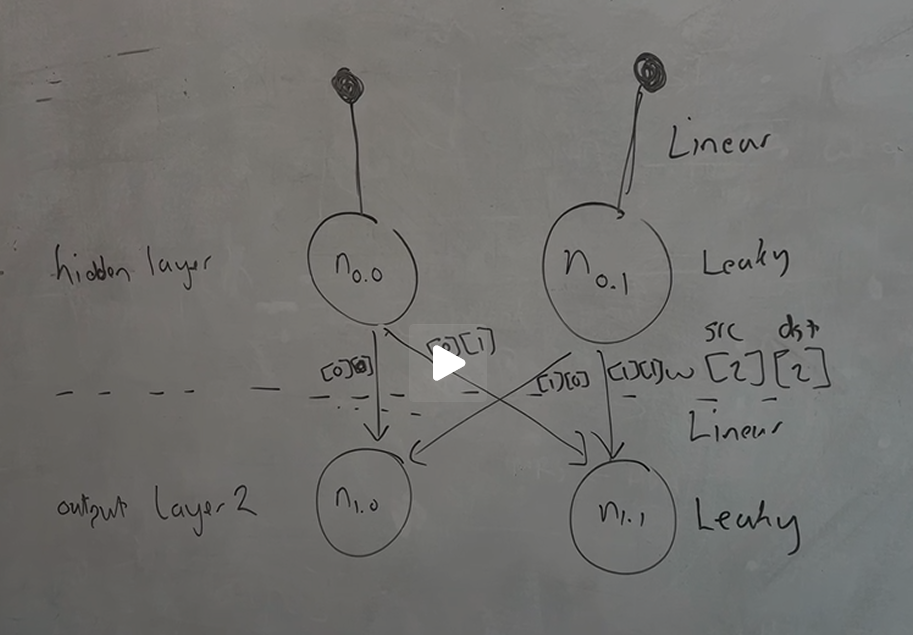 Linear
hidden layer
n0.0
n0.1
Leaky
src dst
[0][0]
[0][1]
[1][0]
[1][1]
w [2][2]
Linear
output layer 2
n1.0
n1.1
Leaky